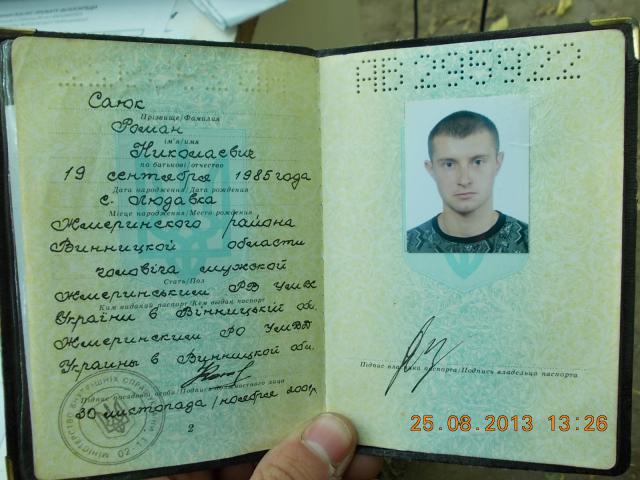 Саюк
Прізвище/Фамилия
Роман
ім'я/имя
Николаевич
по батькові/отчество
19 сентября 1985 года
Дата народження/Дата рождения
с. Людавка
Місце народження/Место рождения
Жмеринского района
Винницкой области
чоловіча мужской
Стать/Пол
Жмеринським РВ УМВС
Ким виданий паспорт/Кем выдан паспорт
України в Вінницькій об.
Жмеринским РО УМВД
Украины в Винницкой обл.
Підпис посадової особи/Подпись должностного лица
30 листопада/ноября 2001
2
АВ 295922
Підпис власника паспорта/Подпись владельца паспорта
25.08.2013 13:26